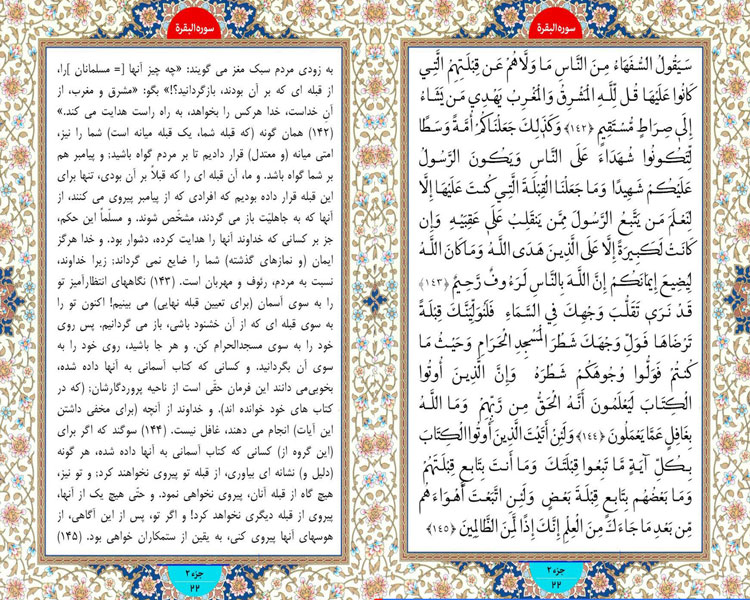 سوره البقرة
سَيَقُولُ السُّفَهَاءُ مِنَ النَّاسِ مَا وَلَّاهُمْ عَن قِبْلَتِهِمُ الَّتِي
كَانُوا عَلَيْهَا قُل لِّلَّهِ الْمَشْرِقُ وَالْمَغْرِبُ يَهْدِي مَن يَشَاءُ
إِلَىٰ صِرَاطٍ مُّسْتَقِيمٍ ﴿۱۴۲﴾ وَكَذَٰلِكَ جَعَلْنَاكُمْ أُمَّةً وَسَطًا
لِّتَكُونُوا شُهَدَاءَ عَلَى النَّاسِ وَيَكُونَ الرَّسُولُ
عَلَيْكُمْ شَهِيدًا وَمَا جَعَلْنَا الْقِبْلَةَ الَّتِي كُنتَ عَلَيْهَا إِلَّا
لِنَعْلَمَ مَن يَتَّبِعُ الرَّسُولَ مِمَّن يَنقَلِبُ عَلَىٰ عَقِبَيْهِ وَإِن
كَانَتْ لَكَبِيرَةً إِلَّا عَلَى الَّذِينَ هَدَى اللَّهُ وَمَا كَانَ اللَّهُ
لِيُضِيعَ إِيمَانَكُمْ إِنَّ اللَّهَ بِالنَّاسِ لَرَءُوفٌ رَّحِيمٌ ﴿۱۴۳﴾
قَدْ نَرَىٰ تَقَلُّبَ وَجْهِكَ فِي السَّمَاءِ فَلَنُوَلِّيَنَّكَ قِبْلَةً
تَرْضَاهَا فَوَلِّ وَجْهَكَ شَطْرَ الْمَسْجِدِ الْحَرَامِ وَحَيْثُ مَا
كُنتُمْ فَوَلُّوا وُجُوهَكُمْ شَطْرَهُ وَإِنَّ الَّذِينَ أُوتُوا
الْكِتَابَ لَيَعْلَمُونَ أَنَّهُ الْحَقُّ مِن رَّبِّهِمْ وَمَا اللَّهُ
بِغَافِلٍ عَمَّا يَعْمَلُونَ ﴿۱۴۴﴾ وَلَئِنْ أَتَيْتَ الَّذِينَ أُوتُوا الْكِتَابَ
بِكُلِّ آيَةٍ مَّا تَبِعُوا قِبْلَتَكَ وَمَا أَنتَ بِتَابِعٍ قِبْلَتَهُمْ
وَمَا بَعْضُهُم بِتَابِعٍ قِبْلَةَ بَعْضٍ وَلَئِنِ اتَّبَعْتَ أَهْوَاءَهُم
مِّن بَعْدِ مَا جَاءَكَ مِنَ الْعِلْمِ إِنَّكَ إِذًا لَّمِنَ الظَّالِمِينَ ﴿۱۴۵﴾
جزء ۲
۲۲
سوره البقرة
به زودی مردم سبک مغز می گویند: «چه چیز آنها [= مسلمانان ]را،
از قبله ای که بر آن بودند، بازگردانید؟!» بگو: «مشرق و مغرب، از
آن خداست، خدا هرکس را بخواهد، به راه راست هدایت می کند.»
(۱۴۲) همان گونه (که قبله شما، یک قبله میانه است) شما را نیز،
امتی میانه (و معتدل) قرار دادیم تا بر مردم گواه باشید; و پیامبر هم
بر شما گواه باشد. و ما، آن قبله ای را که قبلاً بر آن بودی، تنها برای
این قبله قرار داده بودیم که افرادی که از پیامبر پیروی می کنند، از
آنها که به جاهلیّت باز می گردند، مشخّص شوند. و مسلّماً این حکم،
جز بر کسانی که خداوند آنها را هدایت کرده، دشوار بود. و خدا هرگز
ایمان (و نمازهای گذشته) شما را ضایع نمی گرداند; زیرا خداوند،
نسبت به مردم، رئوف و مهربان است. (۱۴۳) نگاههای انتظارآمیز تو
را به سوی آسمان (برای تعیین قبله نهایی) می بینیم! اکنون تو را
به سوی قبله ای که از آن خشنود باشی، باز می گردانیم. پس روی
خود را به سوی مسجدالحرام کن. و هر جا باشید، روی خود را به
سوی آن بگردانید. و کسانی که کتاب آسمانی به آنها داده شده،
بخوبی‌می دانند این فرمان حقّی است از ناحیه پروردگارشان; (که در
کتاب های خود خوانده اند). و خداوند از آنچه (برای مخفی داشتن
این آیات) انجام می دهند، غافل نیست. (۱۴۴) سوگند که اگر برای
(این گروه از) کسانی که کتاب آسمانی به آنها داده شده، هر گونه
(دلیل و) نشانه ای بیاوری، از قبله تو پیروی نخواهند کرد; و تو نیز،
هیچ گاه از قبله آنان، پیروی نخواهی نمود. و حتّی هیچ یک از آنها،
پیروی از قبله دیگری نخواهد کرد! و اگر تو، پس از این آگاهی، از
هوسهای آنها پیروی کنی، به یقین از ستمکاران خواهی بود. (۱۴۵)
جزء ۲
۲۲